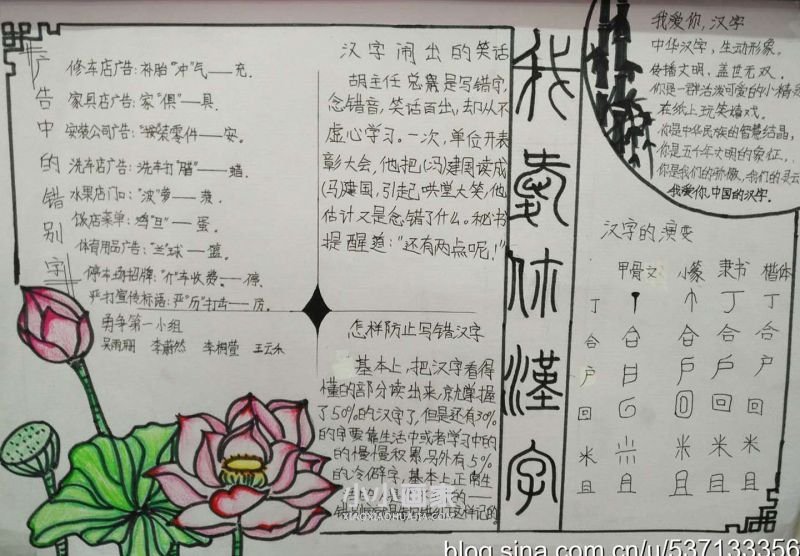 广告中的错别字
修车店广告：补胎“冲”气——充.
家具店广告：家“俱”——具.
安装公司广告：“按”装零件——安。
洗车店广告：洗车打“腊”——蜡.
水果店门口：“波”萝——菠.
饭店菜单：鸡“旦”——蛋.
体育用品广告：“兰”球——篮.
停车场招牌：“仃”车收费.——停.
严打宣传标语：严“历”打击——厉.
勇争第一小组
汉字闹出的笑话
胡主任总是写错字,
念错音，笑话百出，却从不
虚心学习。一次，单位开表
彰大会，他把(冯)建国读成
(马)建国，引起哄堂大笑，他
估计又是念错了什么。秘书
提醒道：“还有两点呢！”
怎样防止写错汉字
基本上，把汉字看得
懂的部分读出来，就掌握
了50%的汉字了，但是还有30%
的要靠生活中或者学习中的
的慢慢积累，另外有5%
的冷僻字，基本上正常生
我爱你汉字
我爱你，汉字
中华汉字，生动形象。
传播文明，盖世无双.
你是一群活泼可爱的小精灵
在纸上玩耍嬉戏.
你是中华民族的智慧结晶,
你是五千年文明的象征,
你是我们的骄傲，我们的灵云
我爱你，中国的汉字.
汉字的演变
甲骨文 小篆 隶书 楷体
丁 丁 丁
合 合 合 合 合
户 户 户 户
回 回 回 回
米 米 米 米
且 且 且 且 且
小小画家
XIAOXIAOHUAJIA.COM
blog.sina.com.cn/u/537133356